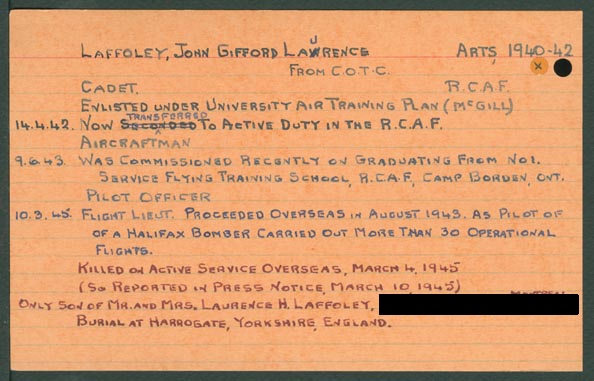 LAFFOLEY, JOHN GIFFORD LAURENCE ARTS, 1940-42
FROM C.O.T.C.
CADET. R.C.A.F.
ENLISTED UNDER UNIVERSITY AIR TRAINING PLAN (MCGILL)
14.4.42. NOW SECONDED TRANSFERRED TO ACTIVE DUTY IN THE R.C.A.F.
AIRCRAFTMAN
9.6.43. WAS COMMISSIONED RECENTLY ON GRADUATING FROM NO1.
SERVICE FLYING TRAINING SCHOOL, R.C.A.F., CAMP BORDEN, ONT.
PILOT OFFICER
10.3.45. FLIGHT LIEUT. PROCEEDED OVERSEAS IN AUGUST 1943. AS PILOT OF
OF A HALIFAX BOMBER CARRIED OUT MORE THAN 30 OPERATIONAL
FLIGHTS.
KILLED ON ACTIVE SERVICE OVERSEAS, MARCH 4, 1945
(SO REPORTED IN PRESS NOTICE, MARCH 10, 1945)
ONLY SON OF MR. AND MRS. LAURENCE H. LAFFOLEY,
BURIAL AT HARROGATE, YORKSHIRE, ENGLAND.